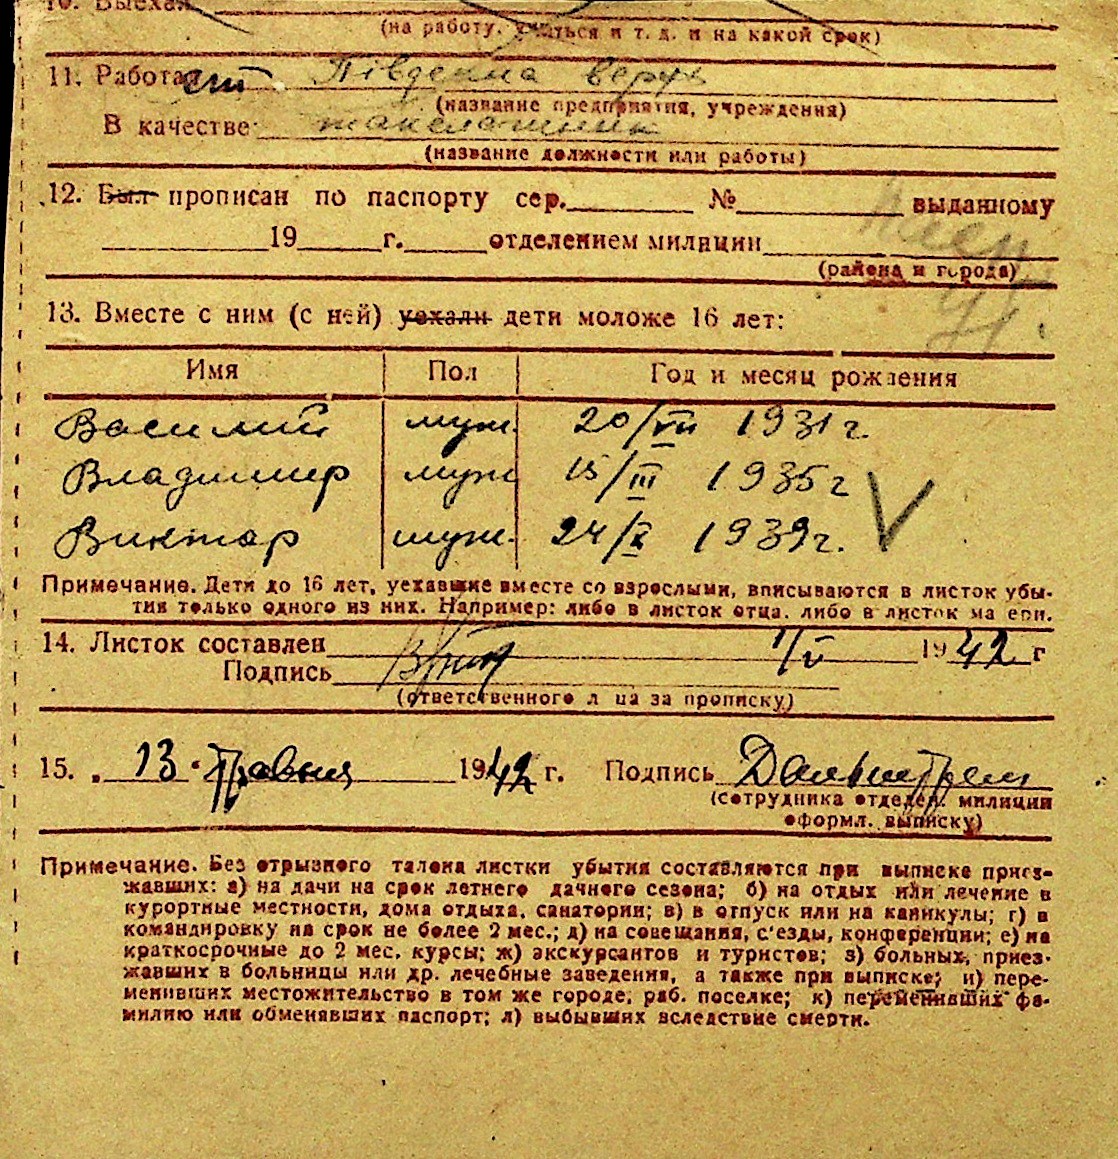 10. Выехал
(на работу, учиться и т. д. и на какой срок)
11. Работает Південна верфь
(название предприятия, учреждения)
В качестве такелажник
(название должности или работы)
12. Был прописан по паспорту сер. № выданному
19 г. отделением милиции
(района и города)
13. Вместе с ним (с ней) уехали дети моложе 16 лет:
Имя Пол Год и месяц рождения
Василий муж. 20/VII 1931 г.
Владимир муж 15/III 1935 г
Виктар муж. 24/X 1939 г.
Примечание. Дети до 16 лет, уехавшие вместе со взрослыми, вписываются в листок убы-
тия только одного из них. Например: либо в листок отца, либо в листок матери.
14. Листок составлен 1/V 1942 г
Подпись
(ответственного лица за прописку)
15. 13 травня 1942 г. Подпись
(сотрудника отделен. милиции
оформл. выписку)
Примечание. Без отрывного талона листки убытия составляются при выписке приез-
жавших: а) на дачи на срок летнего дачного сезона; б) на отдых или лечение в
курортные местности, дома отдыха, санатории; в) в отпуск или на каникулы; г) в
командировку на срок не более 2 мес.; д) на совещания, с'езды, конференции; е) на
краткосрочные до 2 мес. курсы; ж) экскурсантов и туристов; з) больных, приез-
жавших в больницы или др. лечебные заведения, а также при выписке; и) пере-
менивших местожительство в том же городе, раб. поселке; к) переменивших фа-
милию или обменявших паспорт; л) выбывших вследствие смерти.